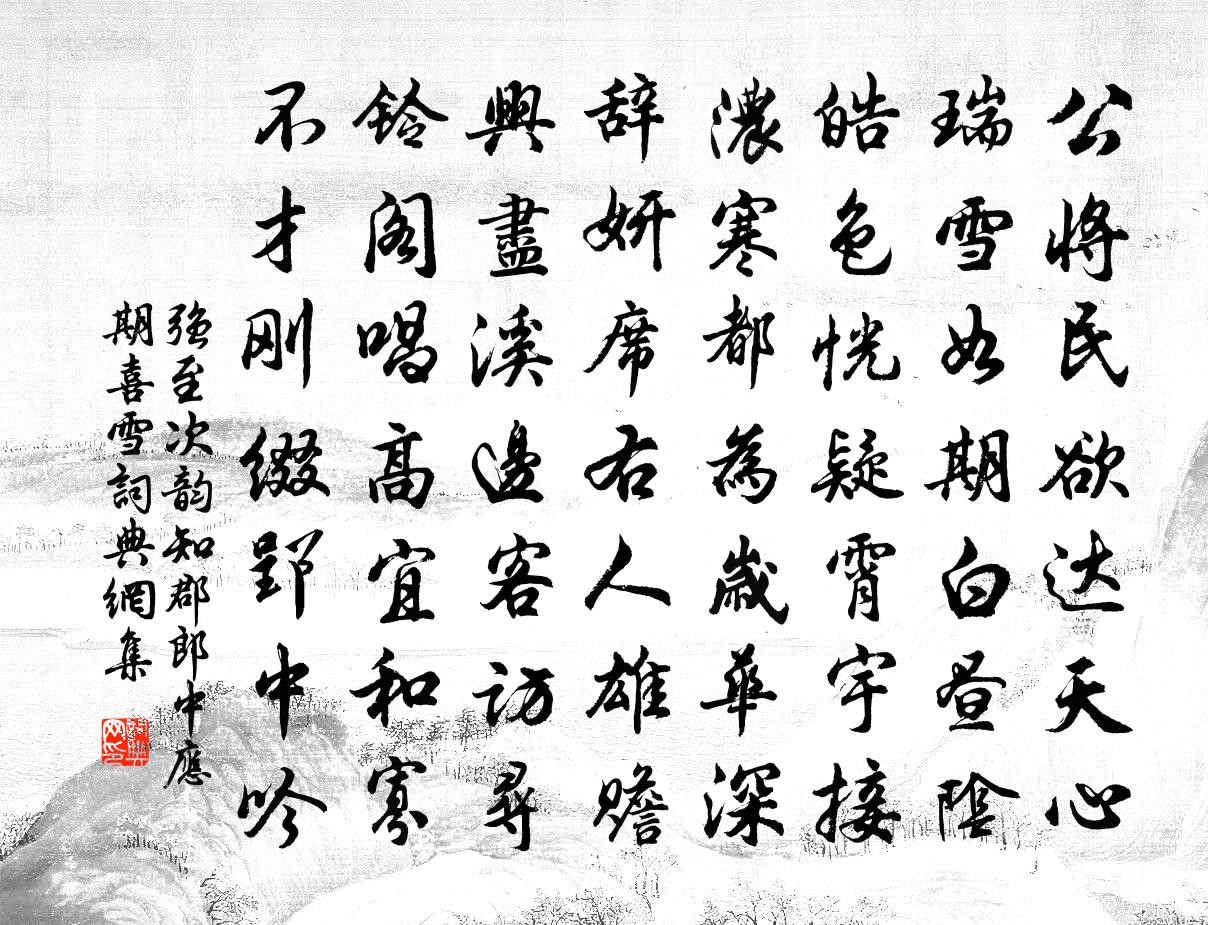 公將民欲达天心
瑞雪如期白昼陰
皓色恍疑霄宇接
濃寒都為歲華深
辞妍席右人雄赡
興盡溪邊客訪尋
鈴阁唱高宜和寡
不才刚缀郢中吟
强至次韵知郡郎中應
期喜雪詞典網集